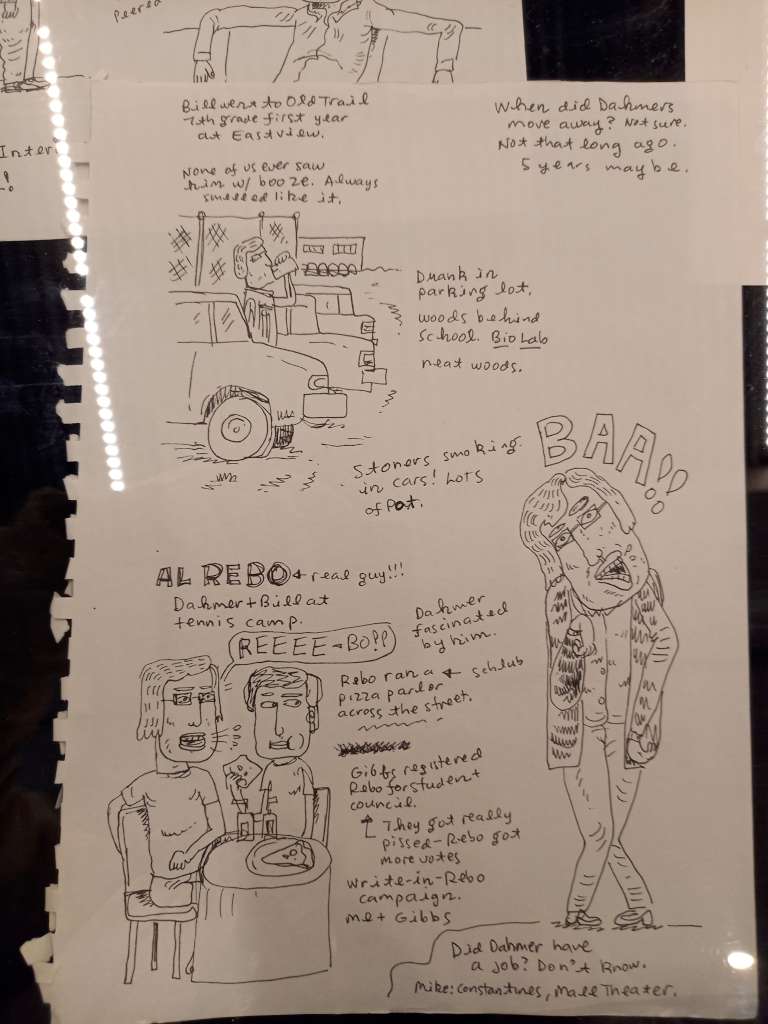 Peered
Inter
!
Bill went to Old Trail
7th grade first year
at Eastview.
When did Dahmers
move away? Not sure.
Not that long ago.
5 years maybe.
None of us ever saw
him w/ booze. Always
smelled like it.
Drank in
parking lot,
woods behind
school. Bio Lab
neat woods.
Stoners smoking
in cars! Lots
of Pot.
BAA!!
AL REBO ← real guy!!!
Dahmer + Bill at
tennis camp.
Dahmer
fascinated
by him.
REEEE-BO!!
Rebo ran a ← schlub
pizza parlor
across the street.
Gibbs registered
Rebo for student
council.
They got really
pissed-Rebo got
more votes
Write-in-Rebo
campaign.
Me + Gibbs
Did Dahmer have
a job? Don't know.
Mike: Constantines, Mall Theater.